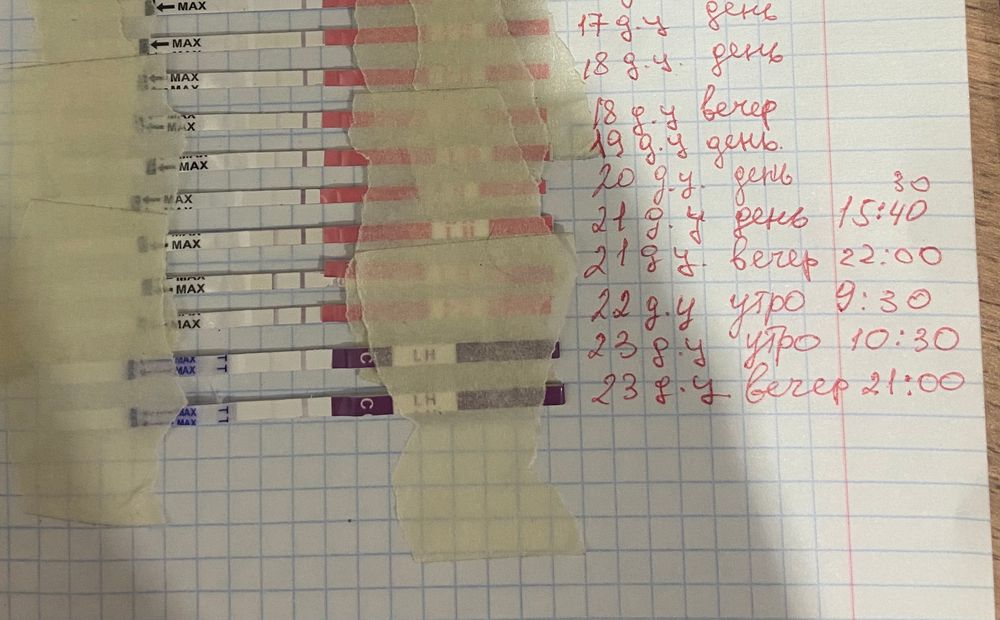 MAX 17 д.ц день
MAX 18 д.ц. день
MAX
MAX 18 д.ц вечер
19 д.ц день.
MAX 20 д.ц. день 30
MAX 21 д.ц день 15:40
MAX LH
21 д.ц. вечер 22:00
MAX 22 д.ц утро 9:30
MAX
MAX T T C LH 23 д.ц утро 10:30
MAX T T C LH 23 д.ц вечер 21:00